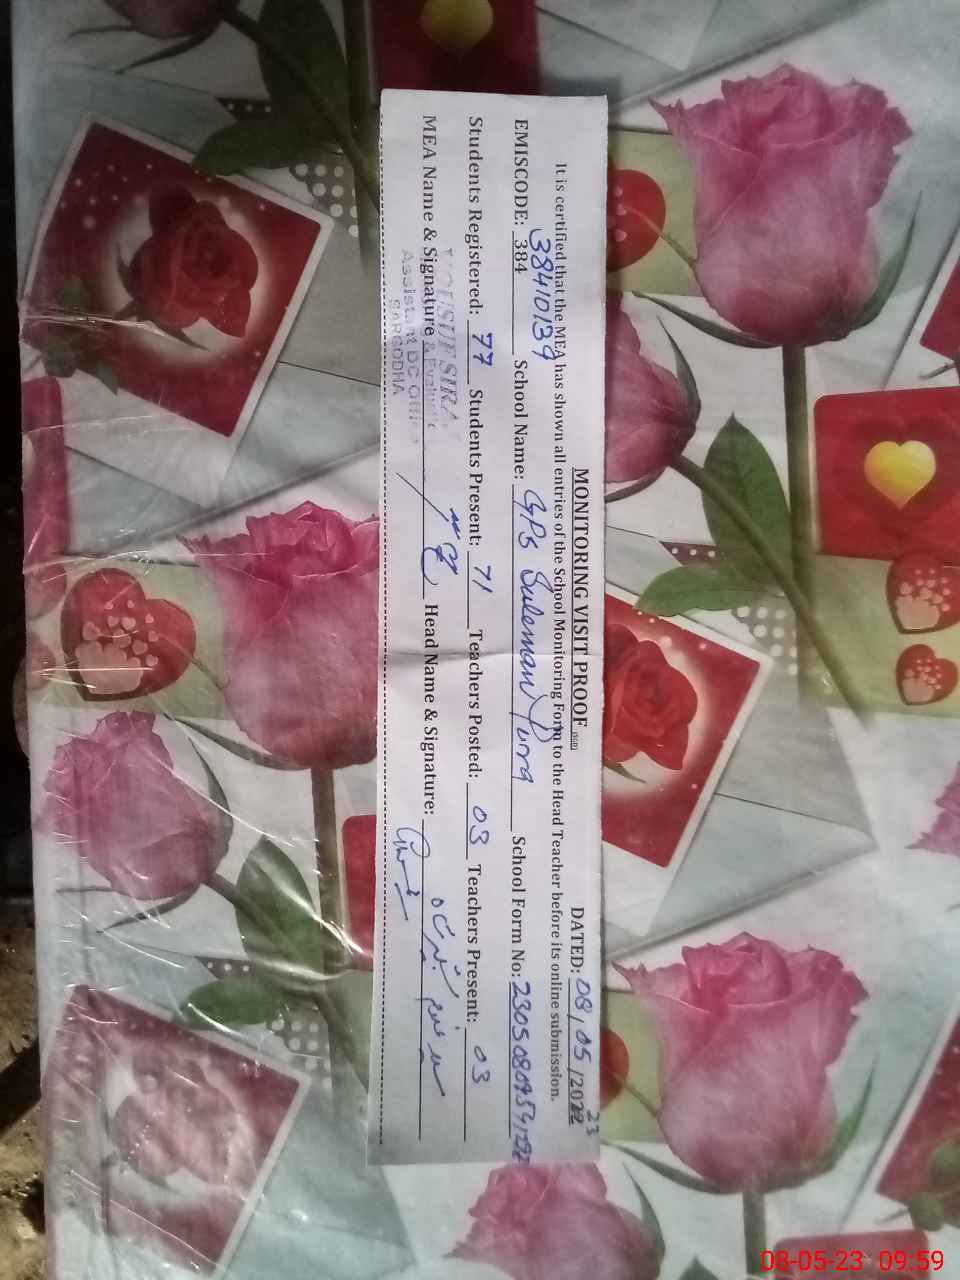 MONITORING VISIT PROOF (SGD) DATED: 08/05/2022 23
It is certified that the MEA has shown all entries of the School Monitoring Form to the Head Teacher before its online submission.
EMISCODE: 384 38410139 School Name: GPS Suleman Pura School Form No: 230508095
Students Registered: 77 Students Present: 71 Teachers Posted: 03 Teachers Present: 03
MEA Name & Signature Head Name & Signature:
Assistant DC Office
SARGODHA
08-05-23 09:59